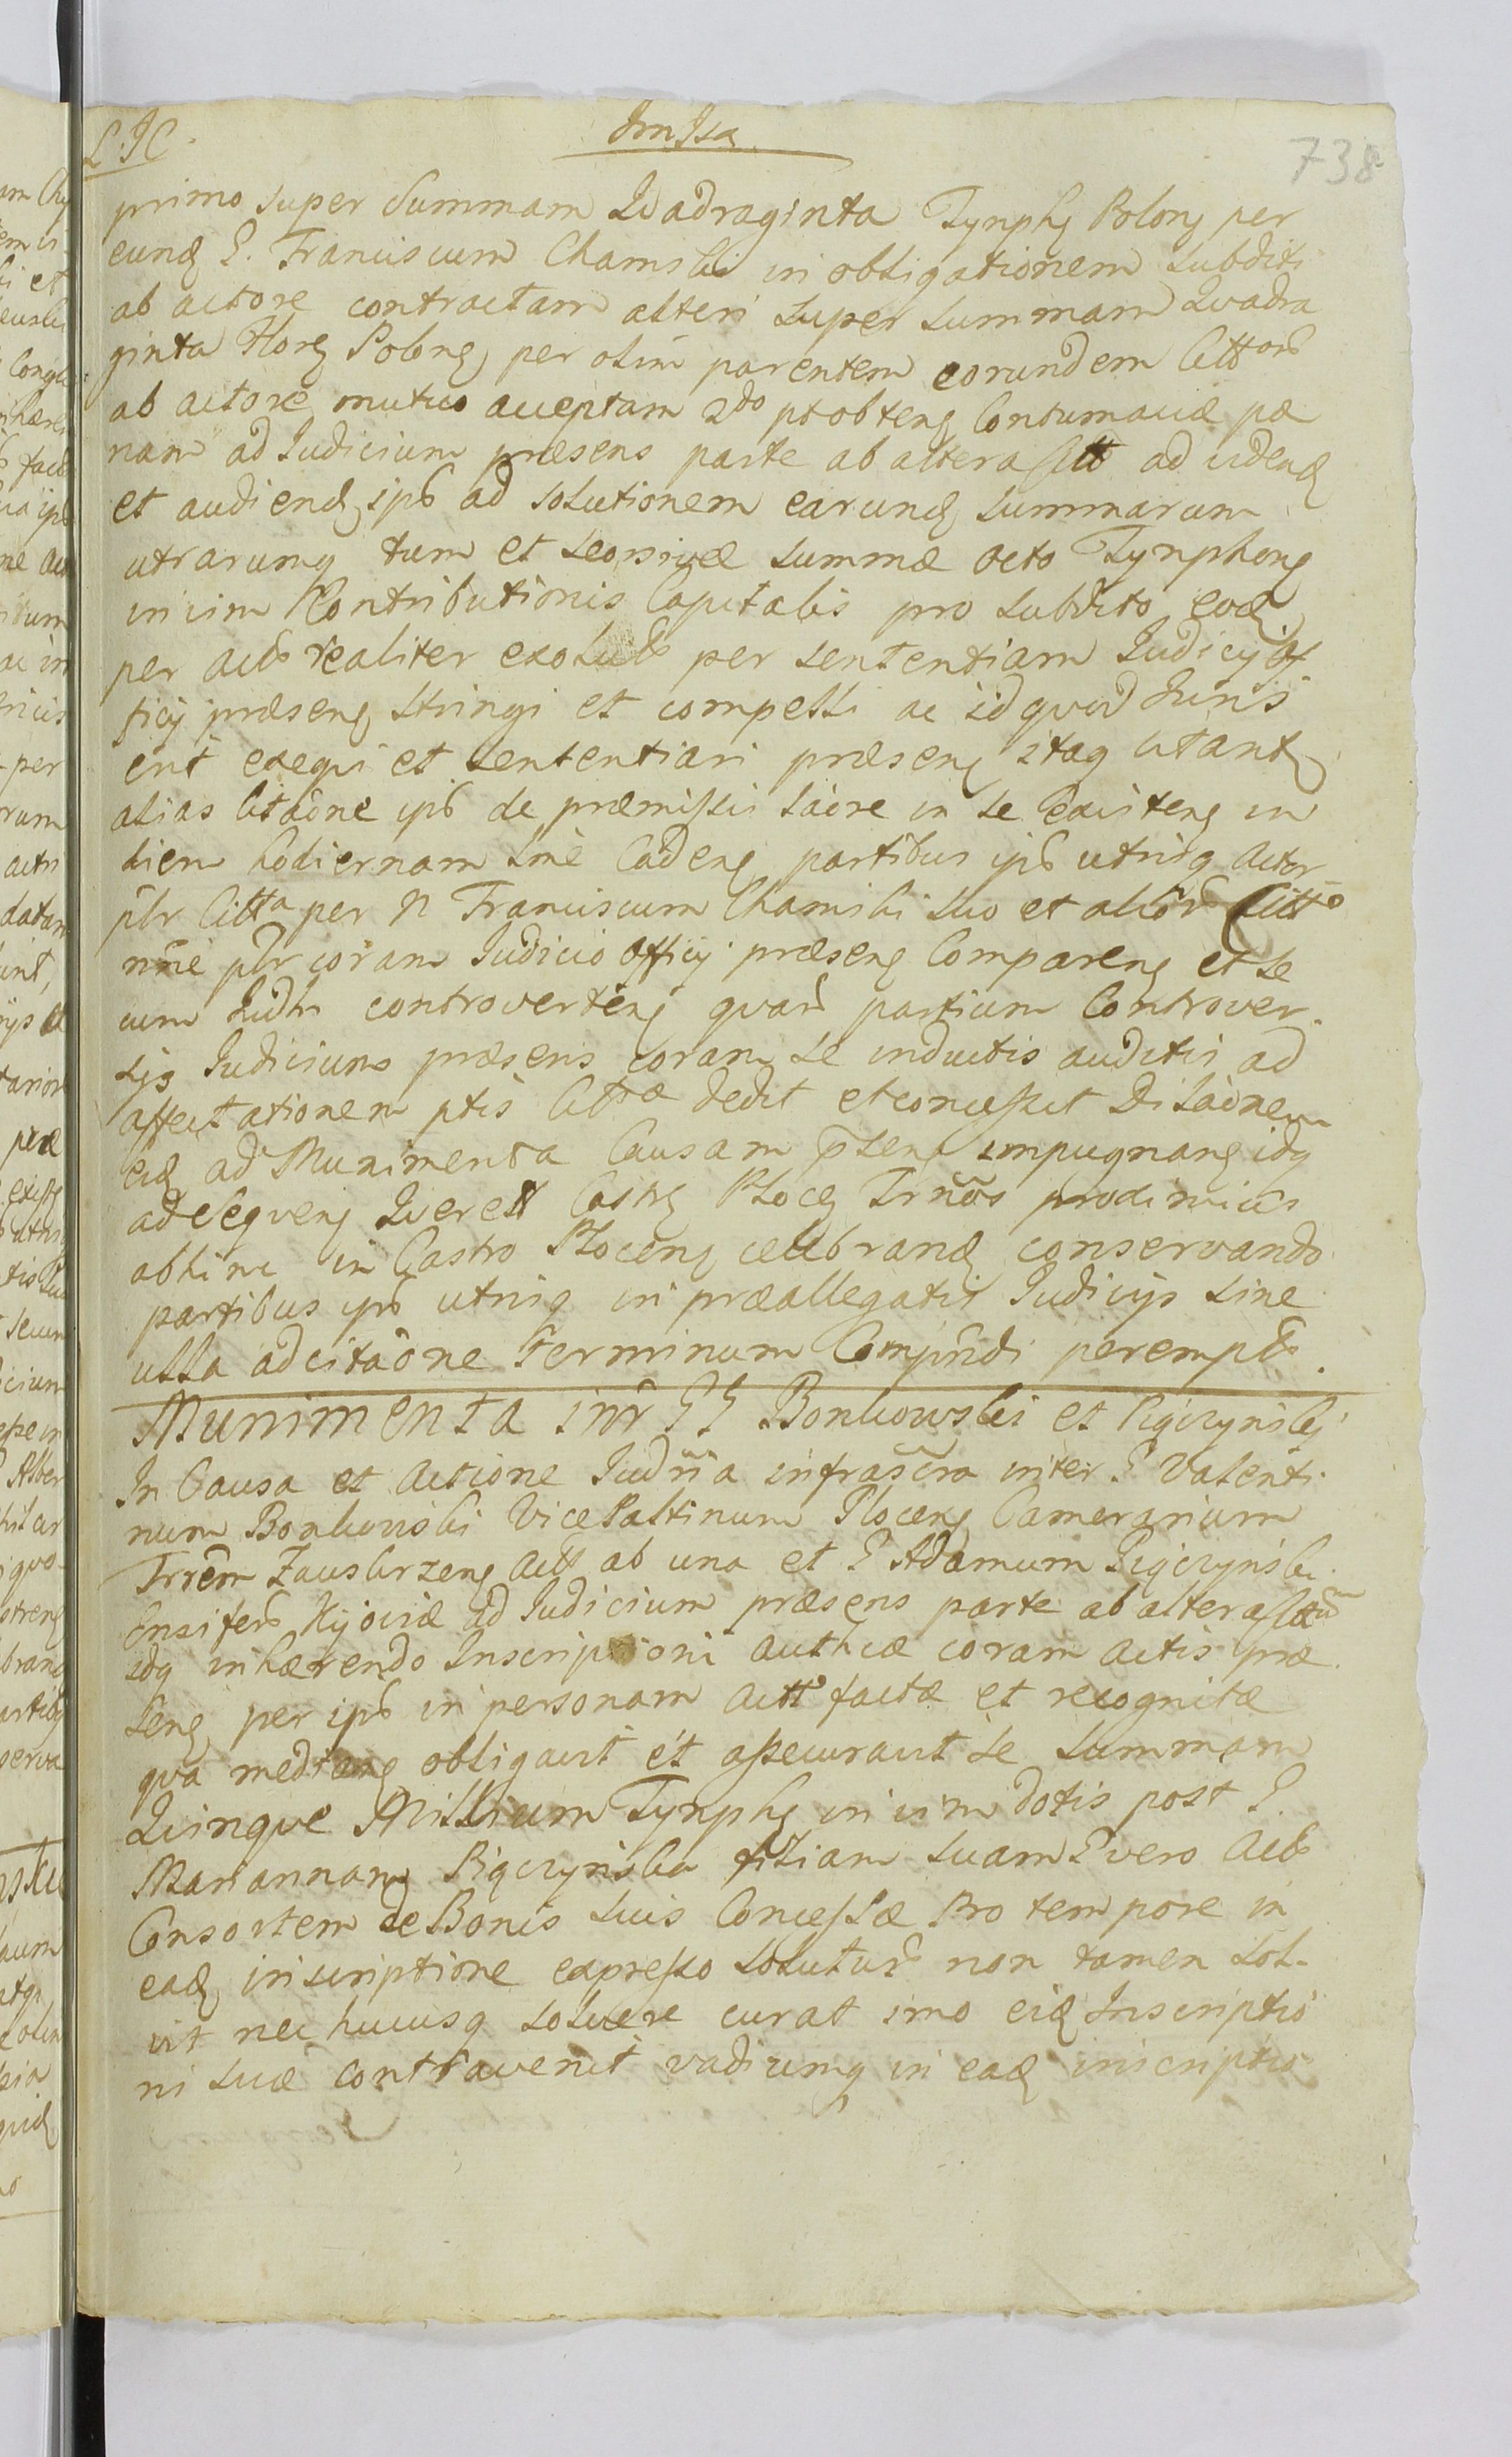 L. IC.
738
primo super Summam Qvadraginta Tynph Polon per
eund G. Franciscum Chamski in obligationem subditi
ab actore contractam alteri super summam Qvadra
ginta Flor Polon per olim parentem eorundem Citt
ab actore mutuo acceptam 2do obten Contumaciæ pæ
nam ad Iudicium præsens parte ab altera Citt ad vidend
et audiend ipō ad solutionem earund summarum
utrarumq tum et seorsivæ summæ octo Tynphon
in vim Contributionis Capitalis pro subdito eod
per act realiter exolut per sententiam Iudicij of
ficij præsen stringi et compelli ac id qvod Iuris
erit exeqvi et sententiari præsen itaq Citant
alias Citaōne ipō de præmissis laōre in se existen in
diem hodiernam sine Caden partibus ipō utrisq Actor
plr Citta per N Franciscum Chamski suo et alior Citto
nn̄e plr coram Iudicio officij præsen Comparen et se
cum Iudlr controverten qvar partium Controver
sijs Iudicium præsens coram se inductis auditis ad
affectationem ptis Cittæ dedit et concessit Dilaōnem
eid ad Munimenta Causam p̄sen impugnan idq
ad Seqven Querell Castr Ploce Trn̄os proximius
abhinc in Castro Plocen celebrand conservando
partibus ipō utrisq in præallegatis Iudicijs sine
ulla adcitaōne Terminum Comprn̄di perempt.
Munimenta intr GG Bonkowski et Pigczynskj
In Causa et Actione Iudn̄a infrascra inter G Valenti
num Bonkowski Vice Paltinum Plocen Camerarium
Trrēm Zauskrzen Act ab una et G Adamum Pigczynski
Ensifer Kijoviæ ad Iudicium præsens parte ab altera Citt
idq inhærendo Inscriptioni authcæ coram Actis præ
sen per ipō in personam Actt factæ et recognitæ
qva median obligavit et assecuravit se summam
Quinqve Millium Tynph in vim dotis post G.
Mariannam Pigczynska filiam suam G vero Act
Consortem de Bonis suis Concessæ Pro tempore in
ead inscriptione expresso solutur non tamen sol-
vit nec hucusq solvere curat imo eid Inscriptio
ni suæ contravenit vadiumq in ead inscriptio